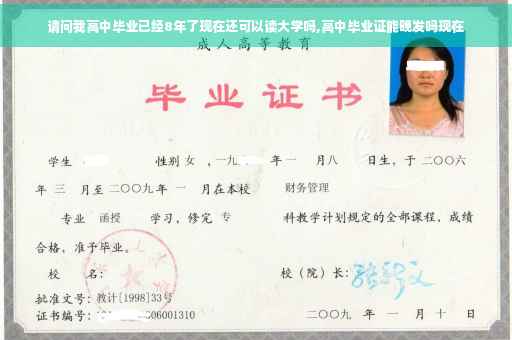 请问我高中毕业已经8年了现在还可以读大学吗,高中毕业证能晚发吗现在
成人高等教育
毕业证书
学生 性别 女 ，一九 年 一 月八 日生，于 二〇〇六
年 三 月至 二〇〇九 年 一 月在本校 财务管理
专业 函授 学习，修完 专 科教学计划规定的全部课程，成绩
合格，准予毕业。
校 名： 校（院）长：
批准文号：教计[1998]33号
证书编号： 06001310 二〇〇九 年 一 月 十 日